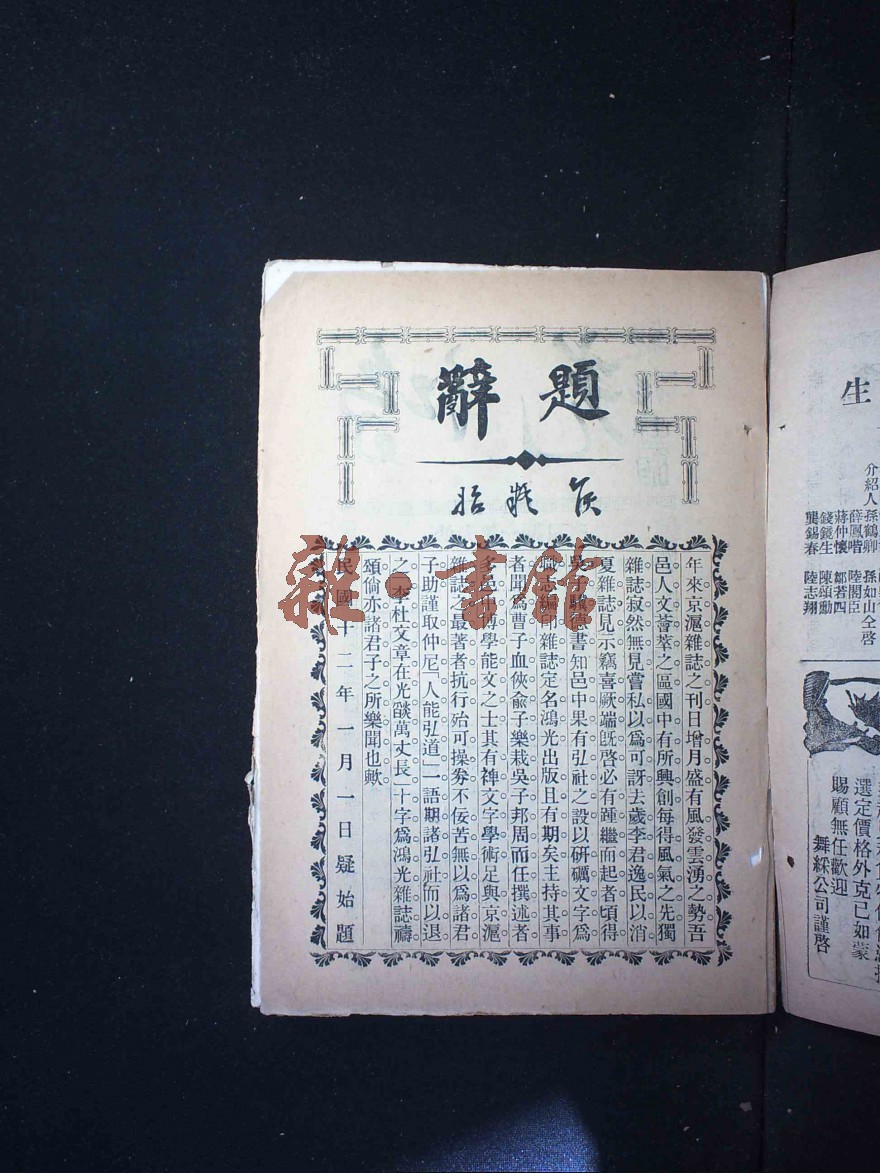 題辭
侯疑始
年來京滬雜誌之刊日增月盛有風發雲湧之勢吾
邑人文薈萃之區國中有所興創每得風氣之先獨
雜誌寂然無見嘗私以爲可訝去歲李君逸民以消
夏雜誌見示竊喜厥端旣啓必有踵繼而起者頃得
吳子驥德書知邑中果有弘社之設以研礪文字爲
職志編印雜誌定名鴻光出版且有期矣主持其事
者聞爲曹子血俠俞子樂栽吳子邦周而任撰述者
多邑中博學能文之士其有裨文字學術足與京滬
雜誌之最著者抗行殆可操劵不佞苦無以爲諸君
子助謹取仲尼「人能弘道」一語期諸弘社而以退
之「李杜文章在光燄萬丈長」十字爲鴻光雜誌禱
頌倘亦諸君子之所樂聞也歟
民國十二年一月一日疑始題
生
介紹人
孫鶴卿
孫如山
仝啓
薛鳳喈
陸閏臣
蔣仲懷
鄒若四
錢鏡生
陳頌勳
龔錫春
陸志翔
選定價格外克已如蒙
賜顧無任歡迎
舞綵公司謹啓
雜·書館